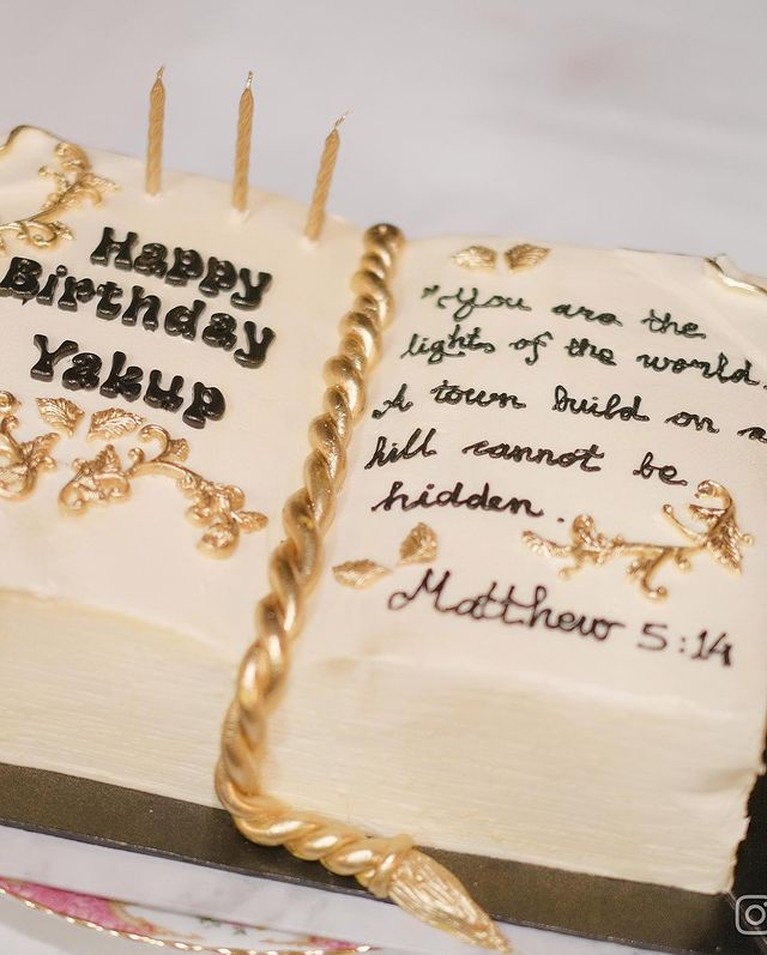 Happy
Birthday
Yakup
"You are the
lights of the world.
A town build on a
hill cannot be
hidden.
Matthew 5:14